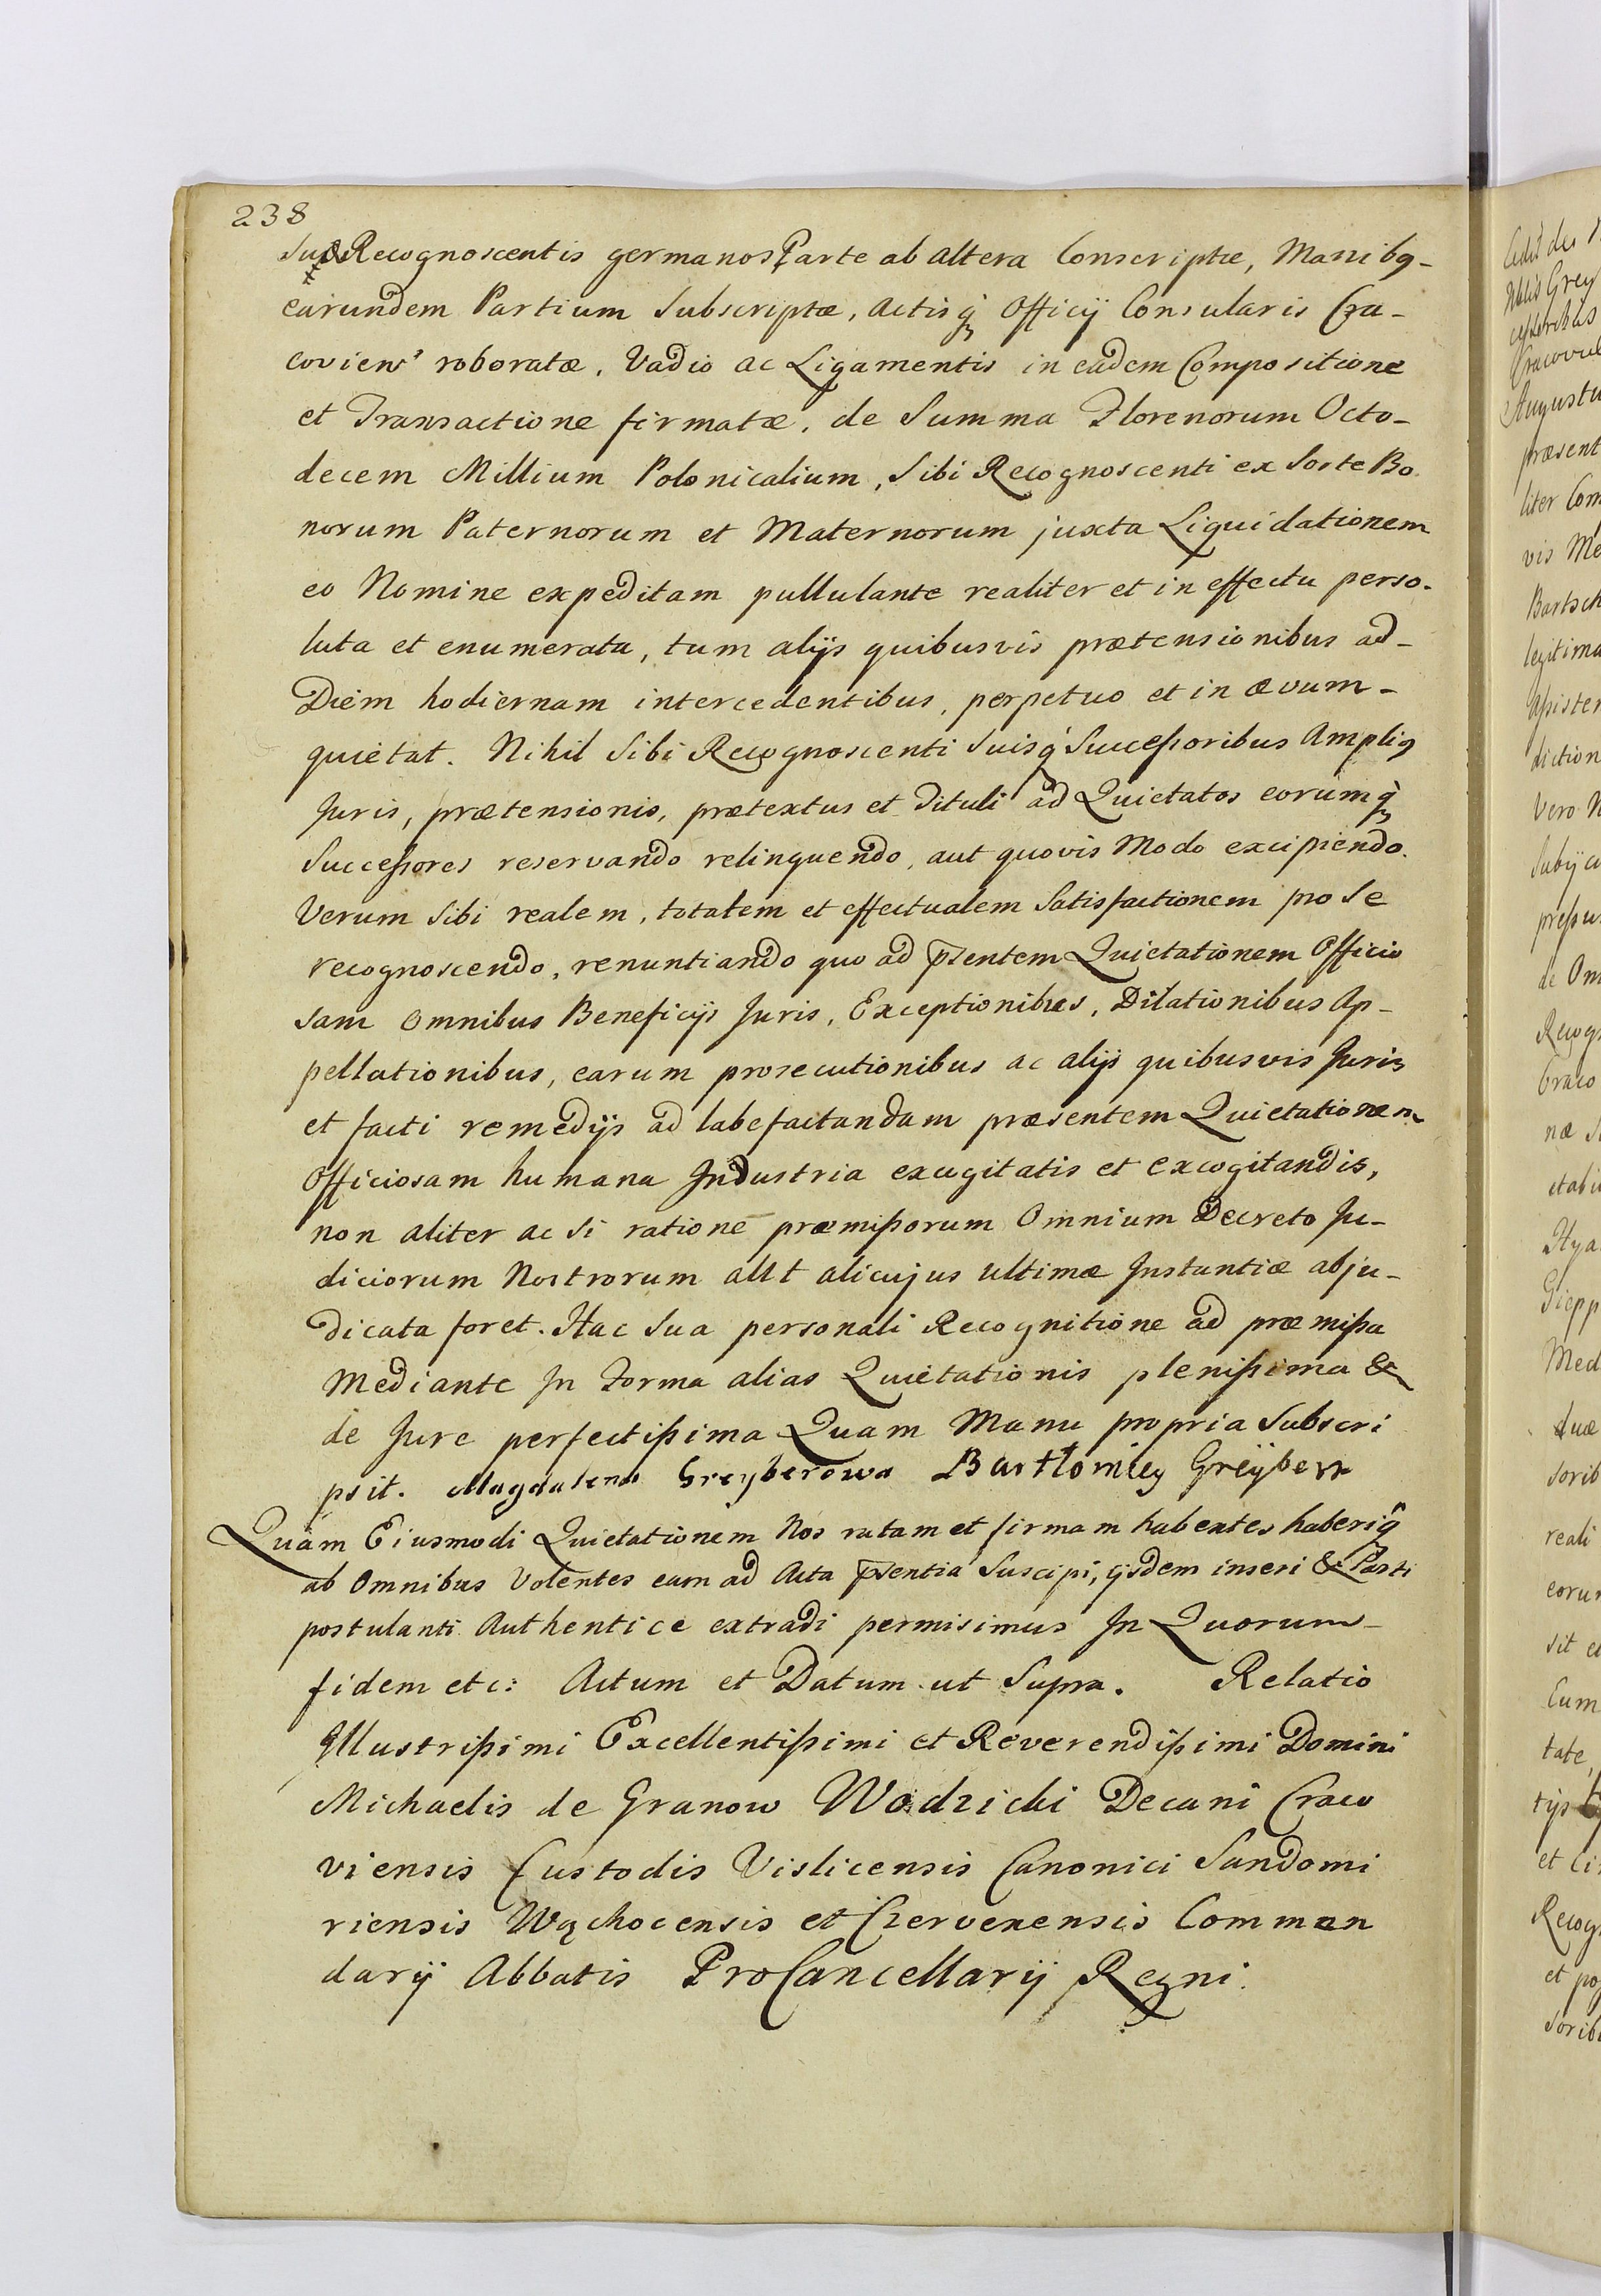 238
Suæ Recognoscentis germanos Parte ab altera Conscriptæ, Manibq-
earundem Partium Subscriptæ, Actisq́ Officij Consularis Cra-
coviens' roboratæ, Vadio ac Ligamentis in eadem Compositione
et Transactione firmatæ, de Summa Florenorum Octo-
decem Millium Polonicalium, Sibi Recognoscenti ex Sorte Bo
norum Paternorum et Maternorum juxta Liquidationem
eo Nomine expeditam pullulante realiter et in effectu perso-
luta et enumerata, tum alijs quibusvis prætensionibus ad-
Diem hodiernam intercedentibus, perpetuo et in ævum-
quietat. Nihil Sibi Recognoscenti Suisq́ Succeßoribus Ampliq
Juris, prætensionis, prætextus et Tituli ad Quietatos eorumq́
Succeßores reservando relinquendo, aut quovis Modo excipiendo.
Verum Sibi realem, totalem et effectualem Satisfactionem pro Se
recognoscendo, renuntiando quo ad p̄sentem Quietationem Officio
sam Omnibus Beneficijs Juris, Exceptionibus, Dilationibus Ap-
pellationibus, earum prosecutionibus ac alijs quibusvis Juris
et facti remedijs ad labefactandam præsentem Quietationem
Officiosam humana Industria excogitatis et excogitandis,
non aliter ac Si ratione præmißorum Omnium Decreto Ju-
diciorum Nostrorum aut alicujus Ultimæ Instantiæ abju-
dicata foret. Hac Sua personali Recognitione ad præmißa
Mediante In Forma alias Quietationis plenißima &
de Jure perfectißima Quam Manu propria Subscri
psit. Magdalena Greyberowa Bartłomiey Greÿber
Quam Eiusmodi Quietationem Nos ratam et firmam habentes haberiq́
ab Omnibus Volentes eam ad Acta p̄sentia Suscipi, ijsdem inseri & Parti
postulanti Authentice extradi permisimus In Quorum-
fidem etc: Actum et Datum ut Supra. Relatio
Illustrißimi Excellentißimi et Reverendißimi Domini
Michaelis de Granow Wodzicki Decani Craco
viensis Custodis Vislicensis Canonici Sandomi
riensis Wąchocensis et Czervenensis Commen
darij Abbatis ProCancellarij Regni.